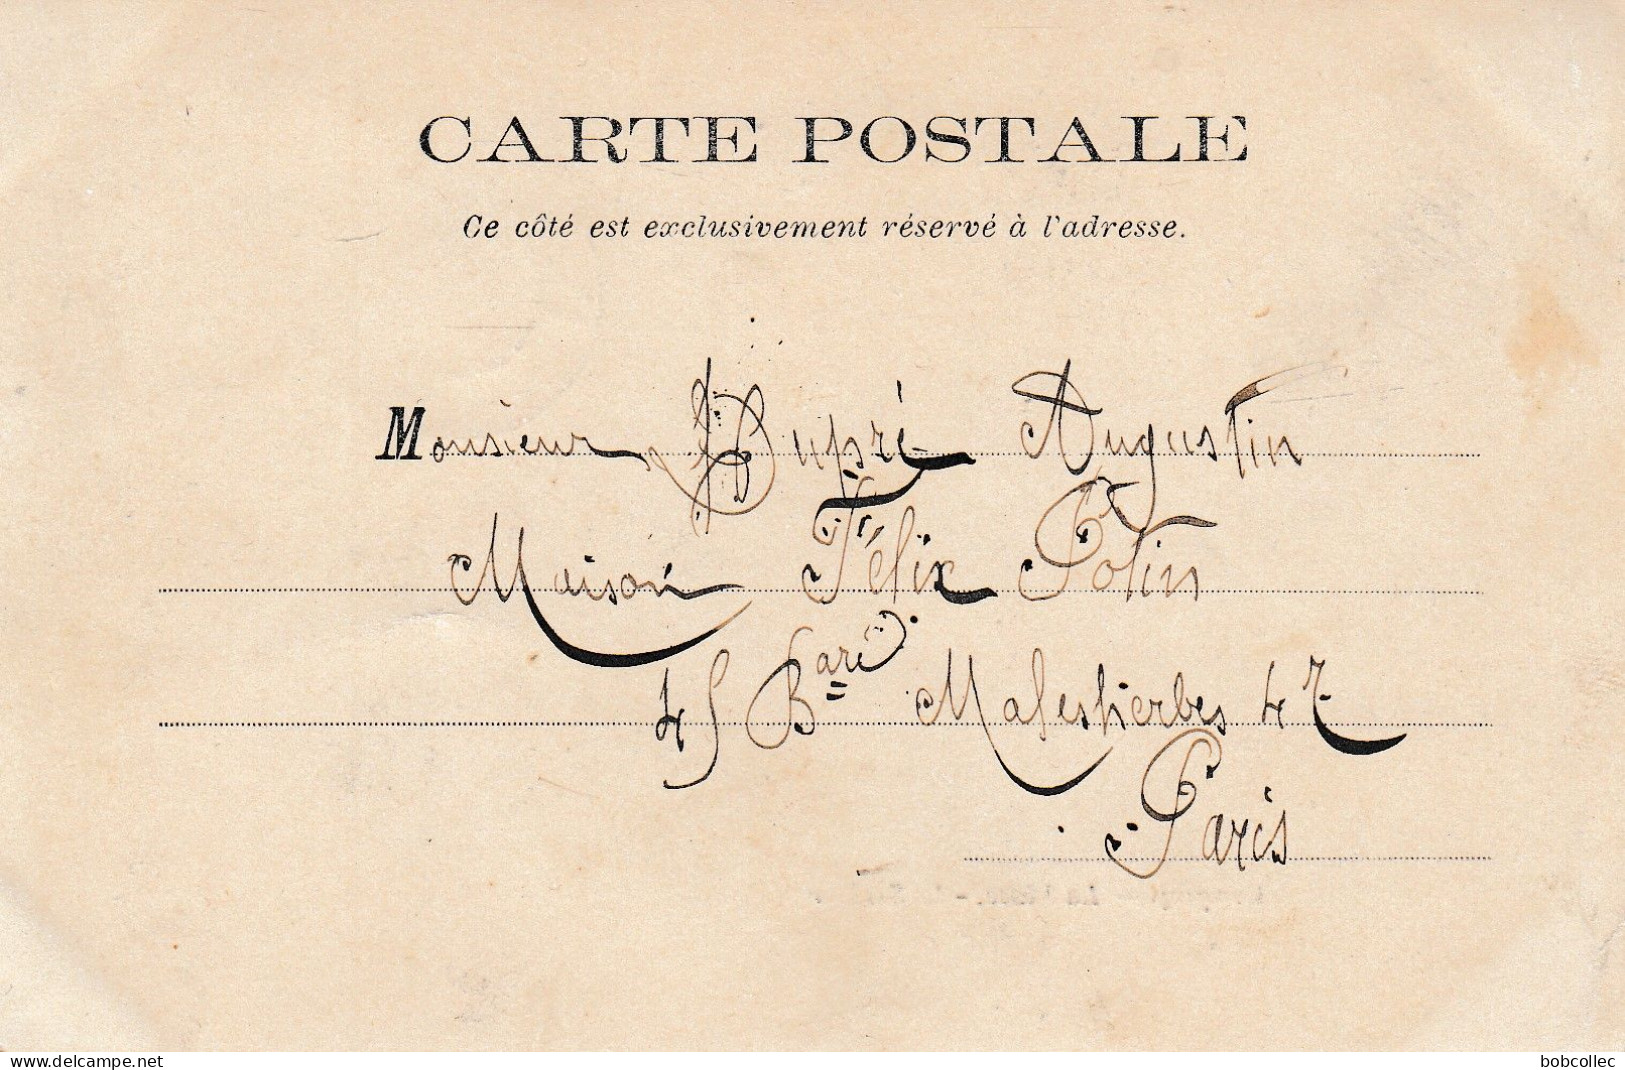 CARTE POSTALE
Ce côté est exclusivement réservé à l'adresse.
Monsieur Dupré Augustin
Maison Félix Potin
45 Bard Malesherbes 47
Paris
www.delcampe.net
bobcollec